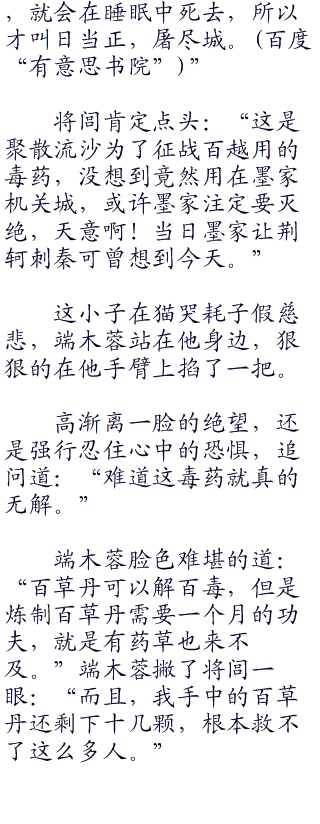 ，就会在睡眠中死去，所以
才叫日当正，屠尽城。(百度
“有意思书院”)”
将闾肯定点头：“这是
聚散流沙为了征战百越用的
毒药，没想到竟然用在墨家
机关城，或许墨家注定要灭
绝，天意啊！当日墨家让荆
轲刺秦可曾想到今天。”
这小子在猫哭耗子假慈
悲，端木蓉站在他身边，狠
狠的在他手臂上掐了一把。
高渐离一脸的绝望，还
是强行忍住心中的恐惧，追
问道：“难道这毒药就真的
无解。”
端木蓉脸色难堪的道：
“百草丹可以解百毒，但是
炼制百草丹需要一个月的功
夫，就是有药草也来不
及。”端木蓉撇了将闾一
眼：“而且，我手中的百草
丹还剩下十几颗，根本救不
了这么多人。”